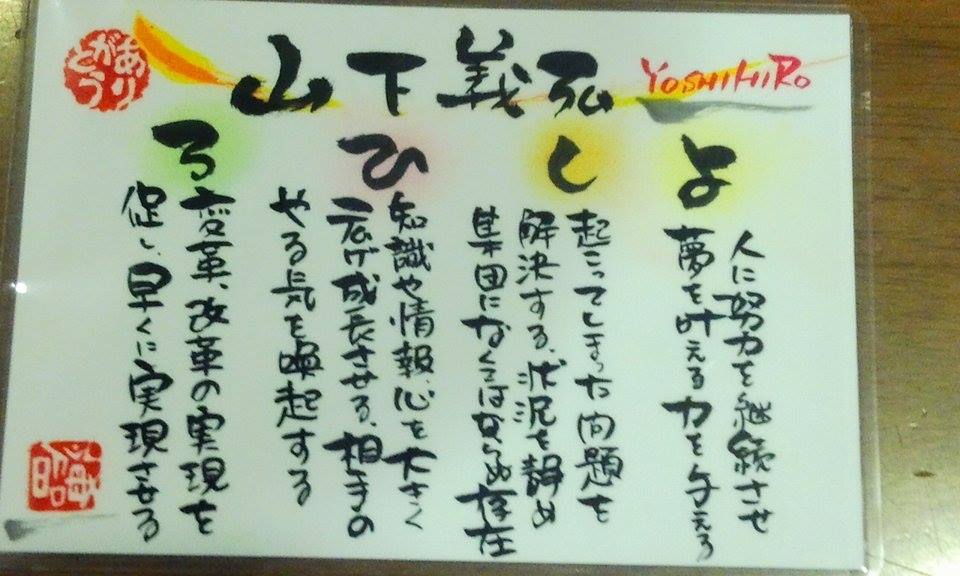 ありがとう
山下義弘
YOSHIHIRO
よ
人に努力を継続させ
夢を叶える力を与える
し
起こってしまった問題を
解決する、状況を静め
集団になくてはならぬ存在
ひ
知識や情報、心を大きく
広げ成長させる、相手の
やる気を喚起する
ろ
変革、改革の実現を
促し、早くに実現させる